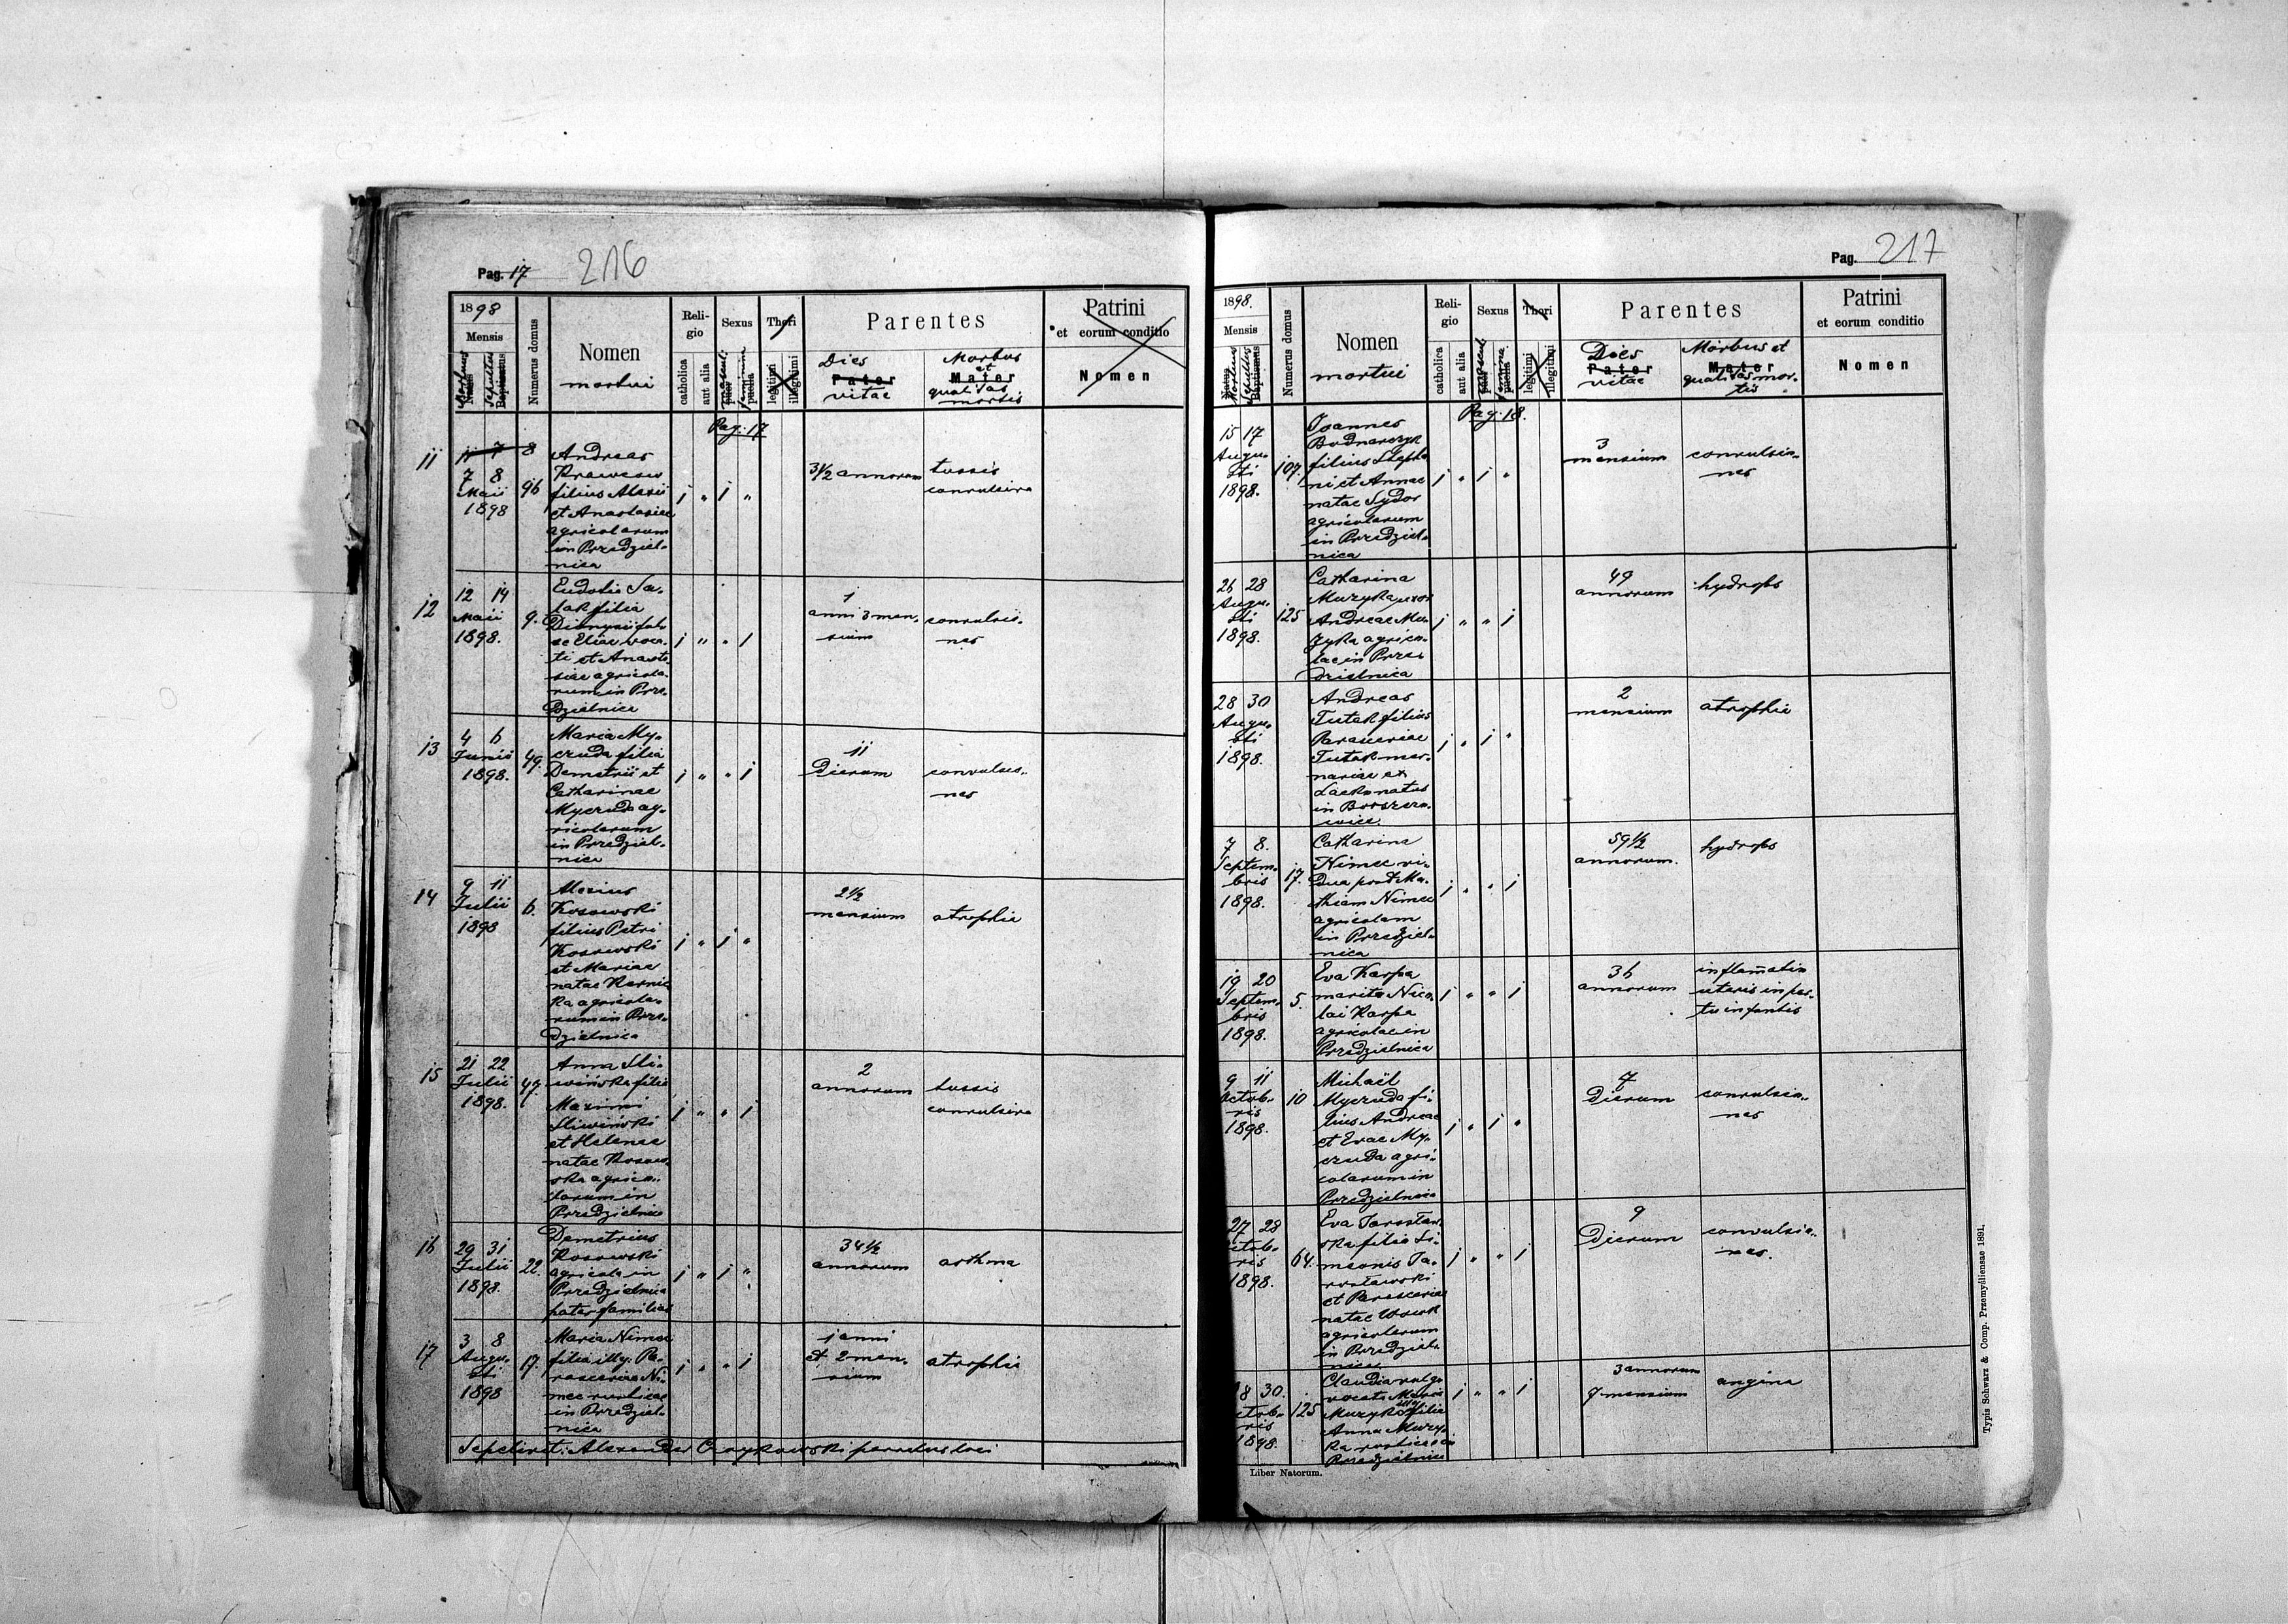 Pag. 17 216
1898
Mensis
Mortuus Natus
Sepultus Baptisatus
Numerus domus
Nomen
mortui
Reli-
gio
catholica
aut alia
Sexus
puer
puella
Thori
legitimi
illegitimi
Parentes
Dies
Pater
vitae
Morbus
et
Mater
qualitas
mortis
Patrini
et eorum conditio
Nomen
Pag. 17
11
7 8
Maii
1898
96
Andreas
filius Alexii
et Anastasiae
agricolarum
in Przedziel-
nica
3 1/2 annorum
tussis
convulsiva
12
12 14
Maii
1898.
9.
Eudokia Sa-
lak filia
Dionysii fal-
se Eliae voca-
ti et Anasta-
siae agricola-
rum in Prze-
dzielnica
1
anni 3 men-
sium
convulsio-
nes
13
4 6
Junii
1898.
49.
Maria My-
czuda filia
Demetrii et
Catharinae
Myczuda ag-
ricolarum
in Przedziel-
nica
11
dierum
convulsio-
nes
14
9 11
Julii
1898
6.
Alexius
Kossowski
filius Petri
Kossowski
et Mariae
natae
agricola-
rum in Prze-
dzielnica
2 1/2
mensium
atrophia
15
21 22
Julii
1898.
47.
Anna Sli-
wińska filia
Maximi
Sliwiński
et Helenae
natae Kossow-
ska agrico-
larum in
Przedzielnica
2
annorum
tussis
convulsiva
16
29 31
Julii
1898.
22.
Demetrius
Kossowski
agricola in
Przedzielnica
pater familias
34 1/2
annorum
asthma
17
3 8
Augu-
sti
1898
17.
Maria Nimec
filia illg. Pa-
rasceviae Ni-
mec rusticae
in Przedziel-
nica
1 anni
et 2 men-
sium
atrophia
Sepelivit: Alexander Czajkowski parochus loci
Pag. 217
1898.
Mensis
Numerus domus
Nomen
mortui
Reli-
gio
catholica
aut alia
Sexus
puer
puella
Thori
legitimi
illegitimi
Parentes
Dies
Pater
vitae
Morbus et
Mater
qualitas mor-
tis
Patrini
et eorum conditio
Nomen
Pag. 18.
15 17
Augu-
sti
1898.
107.
Joannes
Bodnarczyk
filius Stepha-
ni et Annae
natae Sydor
agricolarum
in Przedziel-
nica
3
mensium
convulsio-
nes
26 28
Augu-
sti
1898.
125
Catharina
Muzyka uxor
Andreae Mu-
zyka agrico-
lae in Prze-
dzielnica
49
annorum
hydrops
28 30
Augu-
sti
1898.
Andreas
Tutak filius
Parasceviae
Tutak mer-
nariae ex
natus
in
wice.
2
mensium
atrophia
7 8.
Septem-
bris
1898.
17.
Catharina
Nimec vi-
dua post Ma-
thiam Nimec
agricolam
in Przedziel-
nica
59 1/2
annorum.
hydrops
19 20
Septem-
bris
1898.
5.
Eva Karpa
marita Nico-
lai Karpa
agricolae in
Przedzielnica
36
annorum
inflamatio
uteris in par-
tu infantis
9 11
Octob-
ris
1898.
10
Michaël
Myczuda fi-
lius Andreae
et Evae My-
czuda agri-
colarum in
Przedzielnica
7
dierum
convulsio-
nes
27 28
Octob-
ris
1898.
64.
Eva Jarosław-
ska filia Si-
meonis Ja-
rosławski
et Parasceviae
natae Wowk
agricolarum
in Przedziel-
nica.
9
dierum
convulsio-
nes.
30.
Octob-
ris
1898.
125
Claudia vulgo
vocata Maria
Muzyka filia
Anna Muzy-
ka rusticae in
Przedzielnica
3 annorum
7 mensium
angina
Liber Natorum.
Typis Schwarz & Comp. Przemyśliensae 1891.